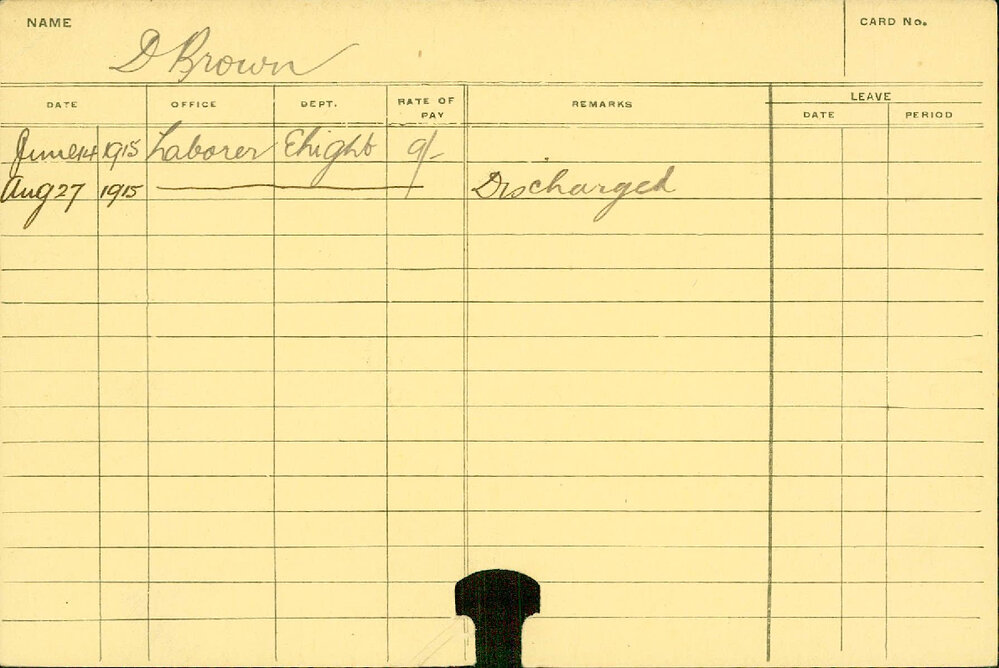 NAME D Brown CARD No.
DATE OFFICE DEPT. RATE OF PAY REMARKS LEAVE
DATE PERIOD
June 14 1915 Laborer Elight 9/-
Aug 27 1915 Discharged